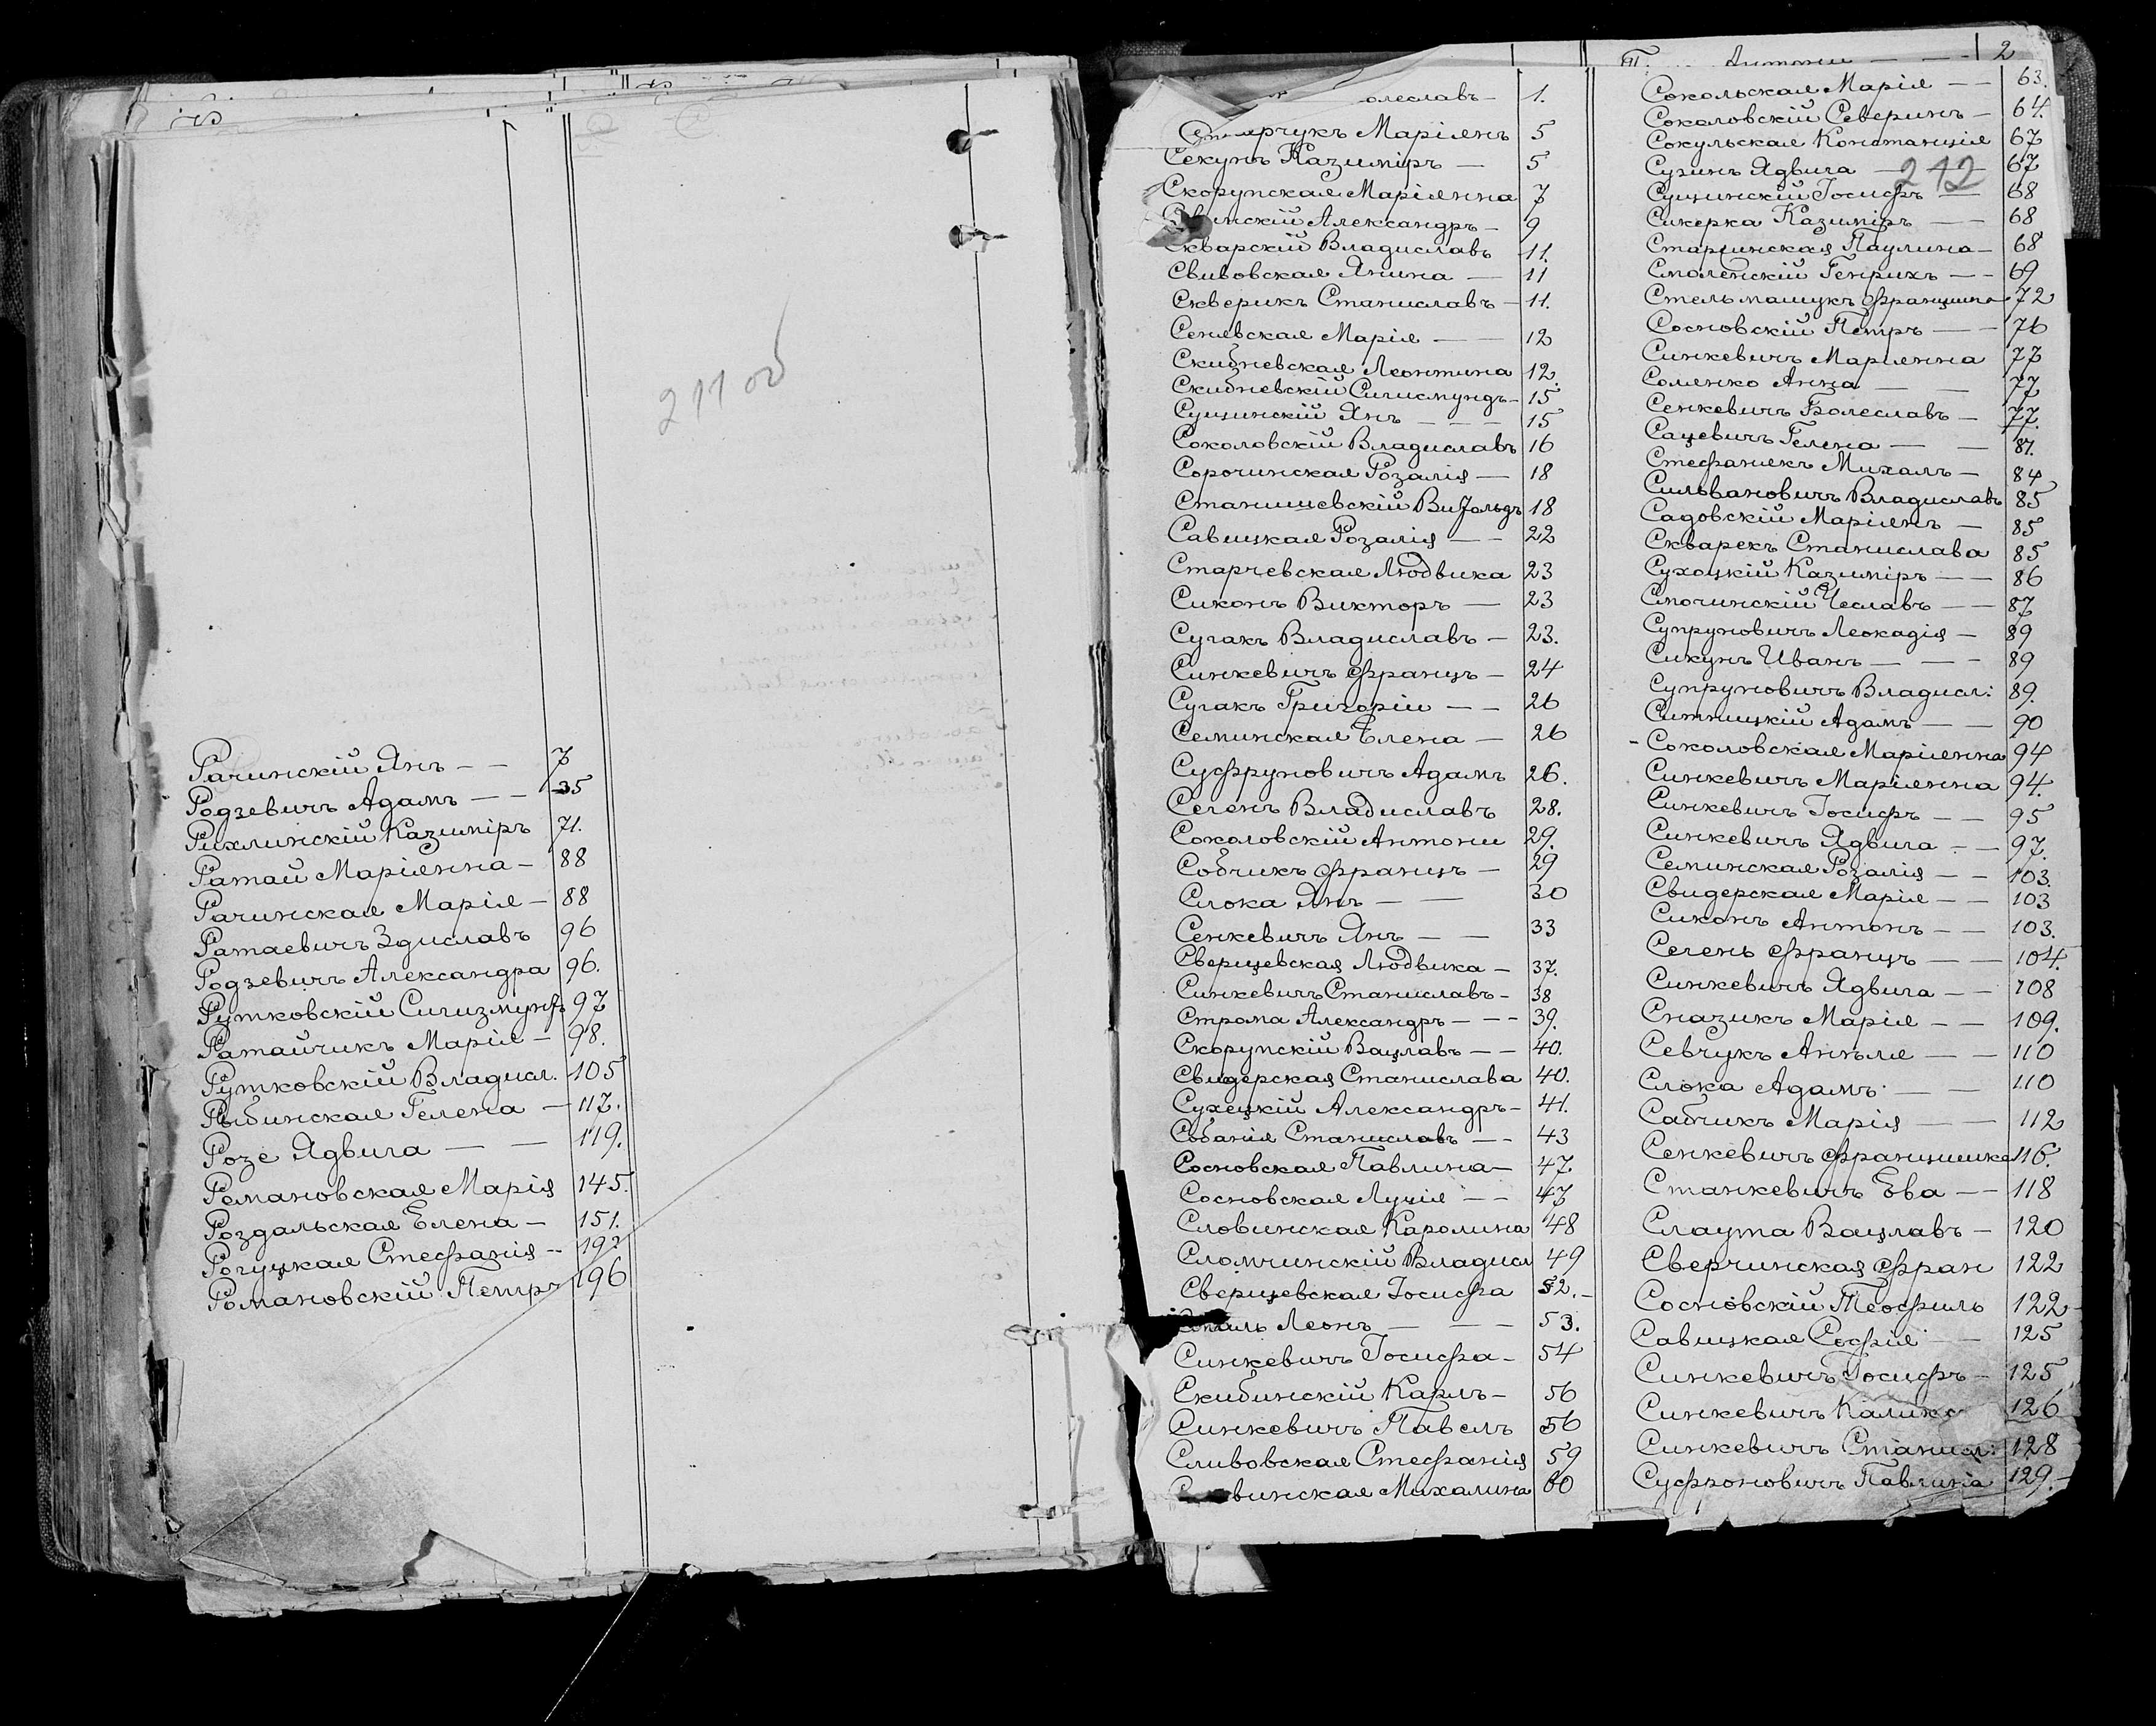 211 об
Рачинскій Янъ — — 7
Родзевичъ Адамъ — — 35
Рихлинскій Казимiръ 71.
Ратай Маріянна — 88
Рачинская Марія — 88
Ратаевичъ Здиславъ 96
Родзевичъ Александра 96.
Рутковскій Сигизмундъ 97
Ратайчикъ Марія — 98.
Рутковскій Владисл. 105
Рыбинская Гелена — 117.
Розе Ядвига — — 119.
Романовская Марія 145.
Роздальская Елена — 151.
Рогуцкая Стефанія -- 192
Романовскій Петръ 196
олеславъ — 1.
Маріянъ 5
Секунъ Казиміръ — 5
Скорупская Маріянна 7
Александръ — 9
Скварскій Владиславъ 11.
Свивовская Янина — 11
Скверикъ Станиславъ — 11.
Сенявская Марія — — 12
Скибневская Леонтина 12.
Скибневскій Сигисмундъ — 15
Сущинскій Янъ — — — 15
Соколовскій Владиславъ 16
Сорочинская Розалія — 18
Станишевскій Витольдъ 18
Савицкая Розалія — — 22
Старчевская Людвика 23
Сиконъ Викторъ — 23
Сугакъ Владиславъ — 23.
Синкевичъ Францъ — 24
Сугакъ Григорій — — 26
Семинская Елена — 26
Суфруновичъ Адамъ 26.
Сегенъ Владиславъ 28.
Соколовскій Антоній 29.
Собчикъ Францъ — 29
Слока Янъ — — 30
Сенкевичъ Янъ — — 33
Сверщевская Людвика — 37.
Синкевичъ Станиславъ — 38
Строма Александръ — — — 39.
Скорупскій Вацлавъ — — 40.
Свидерская Станислава 40.
Сухецкій Александръ — 41.
Собаня Станиславъ — — 43
Сосновская Павлина — 47.
Сосновская Луція — — 47
Словинская Каролина 48
Сломчинскій Владисл 49
Сверщевская Іосифа 52. —
Леонъ — — — 53.
Синкевичъ Іосифа — 54
Скибинскій Карлъ — 56
Синкевичъ Павелъ 56
Сливовская Стефанія 59
винская Михалина 60
Антоній — — — 2
Сокольская Марія — — 63.
Соколовскій Северинъ — 64.
Сокульская Констанція 67
Сузинъ Ядвига — 67
212
Сущинскій Іосифъ — 68
Сикерка Казиміръ — — 68
Старжинская Паулина — 68
Смоленскій Генрихъ — — 69
Стельмащукъ Францишка 72
Сосновскій Петръ — — 76
Синкевичъ Маріянна 77
Солянко Анна — — 77
Сенкевичъ Болеславъ — 77.
Сацевичъ Гелена — — 81.
Стефанякъ Михалъ — 84
Сильвановичъ Владиславъ 85
Садовскій Маріянъ — 85
Скварекъ Станислава 85
Сухоцкій Казиміръ — — 86
Смочинскій Чеславъ — — 87
Супруновичъ Леокадія — 89
Сикунъ Иванъ — — — 89
Супруновичъ Владисл: 89.
Ситницкій Адамъ — — 90
Соколовская Маріянна 94
Синкевичъ Маріянна 94.
Синкевичъ Іосифъ — — 95
Синкевичъ Ядвига — — 97.
Семинская Розалія — — 103.
Свидерская Марія — — 103
Сиконъ Антонъ — — 103.
Сегень Францъ — — 104.
Синкевичъ Ядвига — — 108
Сназикъ Марія — — 109.
Севчукъ Анѣля — — 110
Слока Адамъ — — 110
Сабчикъ Марія — — 112
Сенкевичъ Францишка 116.
Станкевичъ Ева — — 118
Слаута Вацлавъ — 120
Сверчинская Фран 122
Сосновскій Теофиль 122
Савицкая Софія — 125
Синкевичъ Іосифъ — 125
Синкевичъ Каликс 126
Синкевичъ Станисл: 128
Суфроновичъ Павлина 129.